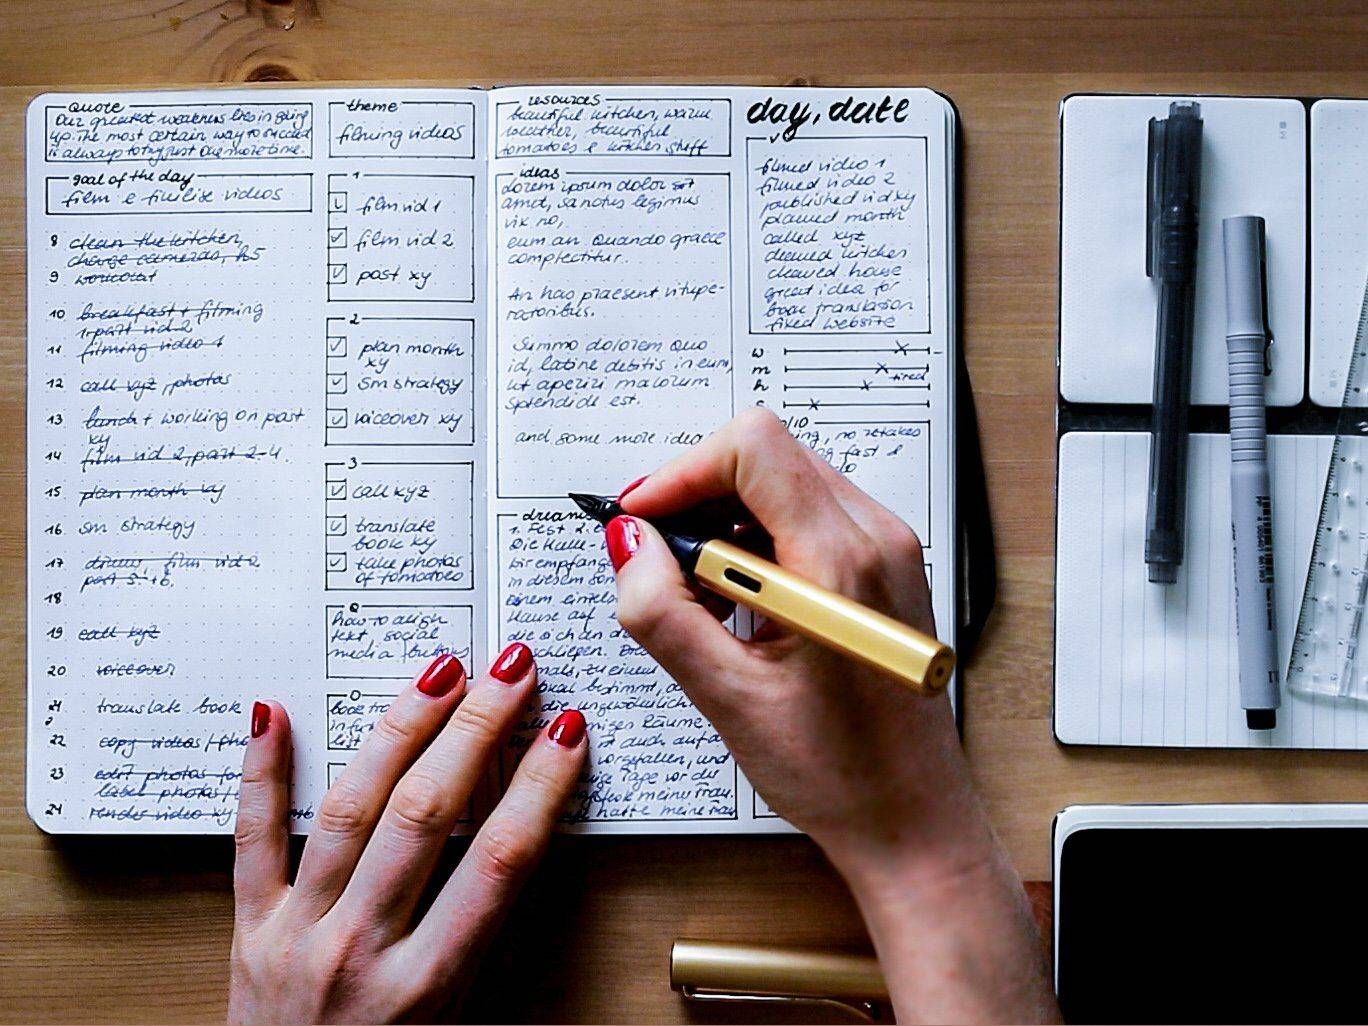 Quote
Our greatest weakness lies in giving
up. The most certain way to succeed
is always to try just one more time.
goal of the day
film e finilize videos
8 clean the kitchen,
charge cameras, h5
9 workout
10 breakfast + filming
1. part vid 2
11 filming video 1
12 call xyz, photos
13 lunch + working on post
xy
14 film vid 2, part 2-4.
15 plan month xy
16 sm strategy
17 film vid 2
part 5-16.
18
19 call xyz
20 voiceover
21 translate book
22 copy videos / pho
23 edit photos for
label photos /
24 render video xy
theme
filming videos
1
film vid 1
film vid 2
post xy
2
plan month
xy
sm strategy
voiceover xy
3
call xyz
translate
book xy
take photos
of tomatoes
Q
how to align
text, social
media buttons
O
book tra
list
resources
beautiful kitchen, warm
weather, beautiful
tomatoes e kitchen stuff
ideas
Lorem ipsum dolor sit
amet, sanctus legimus
vix no,
eum an quando graece
complectitur.
An has praesent vitupe-
ratoribus.
Summo dolorem quo
id, latine debitis in eum,
ut aperiri malorum
splendide est.
and some more ideas
dreams
1. Fest 2.
Die Halle-
wir empfange
in diesem Som
einem einzeln
Hause auf
die sich an d
schliesen.
mals, zu einem
bestimmt, da
die ungewöhnlich
migen Räume.
auch auf d
vorgefallen, und
Tage vor du
meine Frau.
hatte meine Frau
day, date
filmed video 1
filmed video 2
published vid xy
planned month
called xyz
cleaned kitchen
cleaned house
great idea for
book translation
fixed website
w
m
h
tired
no retakes
fast &